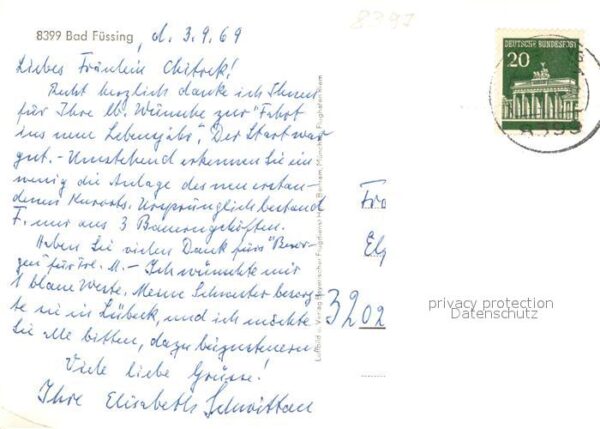 8397
8399 Bad Füssing, d. 3.9.69
Liebes Fräulein Chitrek!
Recht herzlich danke ich Ihnen
für Ihre lb. Wünsche zur "Fahrt
ins neue Lebensjahr". Der Start war
gut. - Umstehend erkennen Sie ein
wenig die Anlage des neu erstan-
denen Kurorts. Ursprünglich bestand
F. nur aus 3 Bauerngehöften.
Haben Sie vielen Dank fürs "Besor-
gen" für Frl. M. - Ich wünschte mir
1 blaue Weste. Meine Schwester besorg-
te sie in Lübeck, und ich möchte
Sie alle bitten, dazu beizusteuern.
Viele liebe Grüsse!
Ihre Elisabeth
Luftbild u. Verlag Bayerischer Flugdienst Hans Bertram, München, Flughafen Riem
DEUTSCHE BUNDESPOST
20
8399
Fr
El
3202
privacy protection
Datenschutz